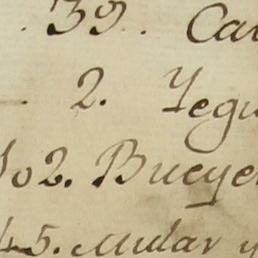 . 39. Ca
. 2. Yegu
02. Bueye
45. Mular y